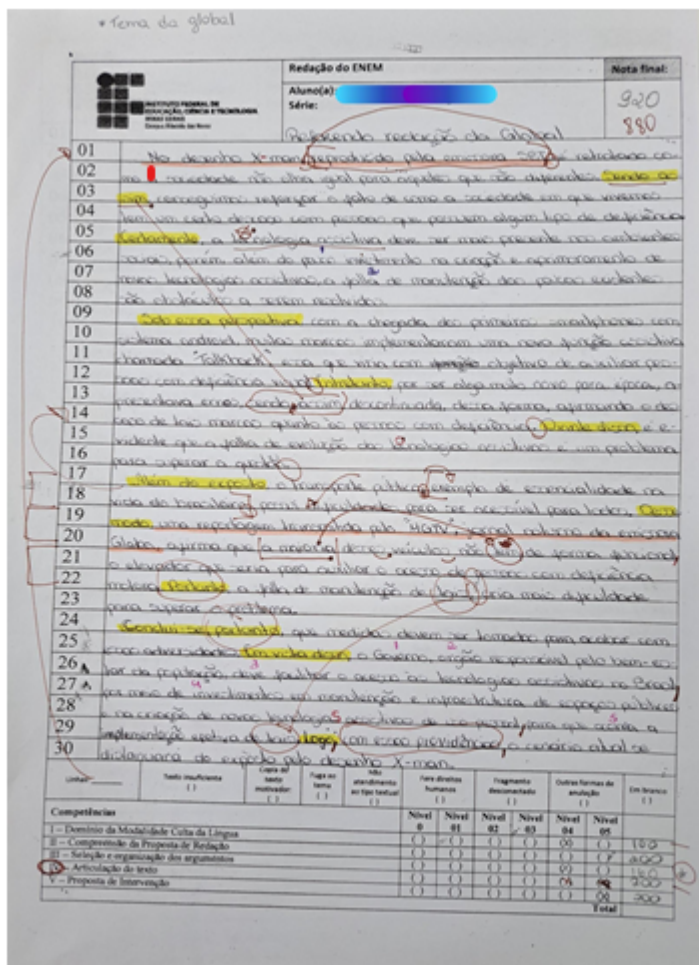 *Tema da global
Redação do ENEM
Nota final:
INSTITUTO FEDERAL DE
EDUCAÇÃO, CIÊNCIA E TECNOLOGIA
MINAS GERAIS
Aluno(a):
Série:
920
880
Refazendo redação da Global
01 No desenho X-man, reproduzido pela emissora SBT, é retratado co-
02 mo a sociedade não olha igual para aqueles que são diferentes. Sendo as-
03 sim, conseguimos reforçar o fato de como a sociedade em que vivemos
04 tem um certo descaso com pessoas que possuem algum tipo de deficiência
05 Certamente, a tecnologia assistiva deve ser mais presente nos ambientes
06 sociais, porém, além do pouco investimento na criação e aprimoramento de
07 novas tecnologias assistivas, a falta de manutenção das poucas existentes
08 são obstáculos a serem resolvidos.
09 Sob essa perspectiva com a chegada dos primeiros smartphones com
10 sistema android, muitas marcas implementaram uma nova função assistiva
11 chamada "Talkback" essa que viria com objetivo de auxiliar pes-
12 soas com deficiência visual. Entretanto, por ser algo muito novo para época, a
13 presentava erros, sendo assim descontinuada, dessa forma, afirmando o des-
14 caso de tais marcas quanto às pessoas com deficiência. Diante disso é e-
15 vidente que a falta de evolução das tecnologias assistivas é um problema
16 para superar a questão.
17 Além do exposto o transporte público, exemplo de essencialidade na
18 vida do brasileiro possui dificuldade para ser acessível para todos. Desse
19 modo, uma reportagem transmitida pelo "MGTV", jornal noturno da emissora
20 Globo, afirma que a maioria desses veículos não tem de forma funcional
21 o elevador que seria para auxiliar o acesso de pessoas com deficiência
22 motora. Portanto a falta de manutenção de tais seria mais dificuldade
23 para superar o problema.
24 Conclui-se, portanto, que medidas devem ser tomadas para acabar com
25 essas adversidades. Em vista disso, o Governo, órgão responsável pelo bem-es-
26 tar da população, deve facilitar o acesso às tecnologias assistivas no Brasil,
27 por meio de investimentos em manutenção e infraestrutura de espaços públicos
28 e na criação de novas tecnologias assistivas de uso pessoal, para que ocorra a
29 implementação efetiva de tais. Logo, com essas providências, o cenário atual se
30 distanciará do exposto pelo desenho X-man.
Linhas:
Texto insuficiente
( )
Cópia de
texto
motivador:
( )
Fuga ao
tema
( )
Não
atendimento
ao tipo textual
( )
Fere direitos
humanos
( )
Fragmento
desconectado
( )
Outras formas de
anulação
( )
Em branco
( )
Competências
Nível 0
Nível 01
Nível 02
Nível 03
Nível 04
Nível 05
I – Domínio da Modalidade Culta da Língua 160
II – Compreensão da Proposta de Redação 200
III – Seleção e organização dos argumentos 160
IV – Articulação do texto 200
V – Proposta de Intervenção 200
Total